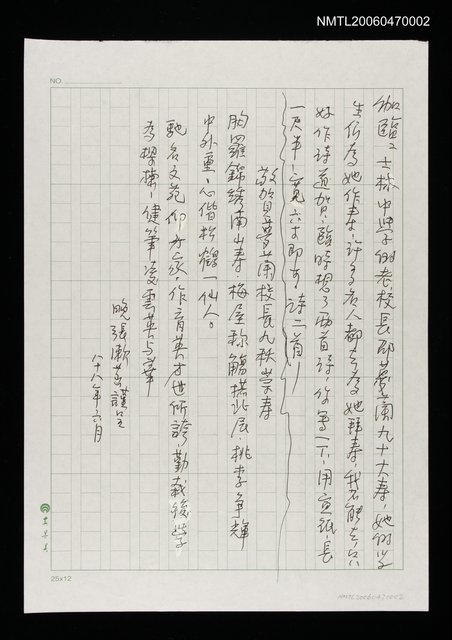 NMTL20060470002
NO.
士林中學的老校長邵夢蘭九十大壽，她的學
生們為她作壽，許多名人都去為她拜壽，我不能去，只
好作詩道賀，臨時想了兩首詩，你寫一下，用宣紙，長
一尺半，寬六寸即可，詩二首
敬賀夢蘭校長九秩嵩壽
胸羅錦繡南山壽，梅屋稱觴拱北辰，桃李爭輝
中外重，心偕松鶴一仙人。
馳名文苑仰方家，作育英才世所誇，勤栽後學
為樑棟，健筆凌雲英與華
晚張漱菡謹呈
八十八年六月
25x12
NMTL20060470002